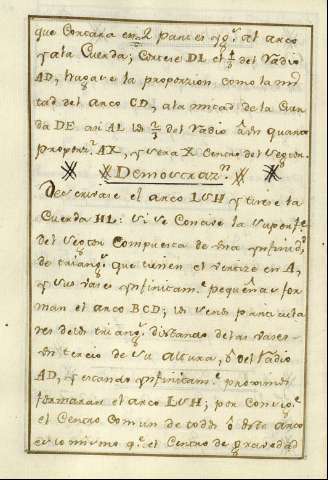 que cortara en 2 partes yg.s al arco
y a la Cuerda; Cortese DL el del Radio
AD, hagase la proporzion como la mi
tad del arco CD, a la mitad de la Cuer
da DE asi AL
proporz.l AX, y sera X Centro del Sector.
Demostraz.n
Descrivase el arco LSH y tirese la
Cuerda HL: si se Concive la superf.e
del Sector Compuesta de una ynfinid.d
de triang.s que tienen el vertize en A,
y sus vases ynfinitam.e pequeñas for
man el arco BCD; los Centr. particula
res de los triang.s distando de las vases
un tercio de su altura, ô del Radio
AD, y estando ynfinitam.e proximos
formaran el arco LSH; por Consig.e
el Centro Comun de todos ô de este arco
es lo mismo q.e el Centro de gravedad